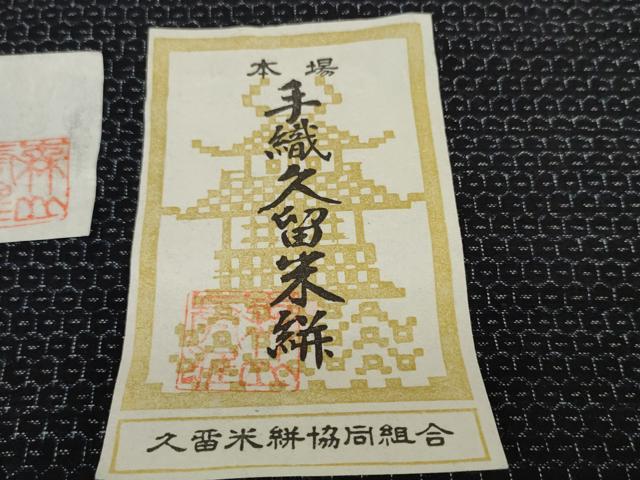 本場
手織久留米絣
久留米絣協同組合